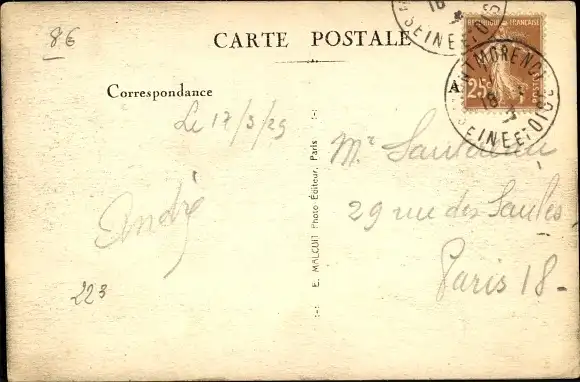 86
CARTE POSTALE
Correspondance
Le 17/3/29
André
223
E. MALCUIT Photo Éditeur, Paris
18
SEINE ET OISE
REPUBLIQUE FRANÇAISE
25
MONTMORENCY
18
SEINE ET OISE
Mr
29 rue des Saules
Paris 18